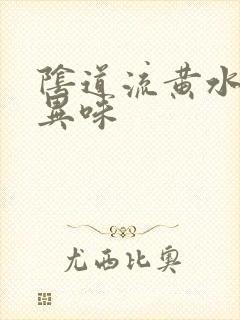 陰道流黄水
異味
尤西比奥